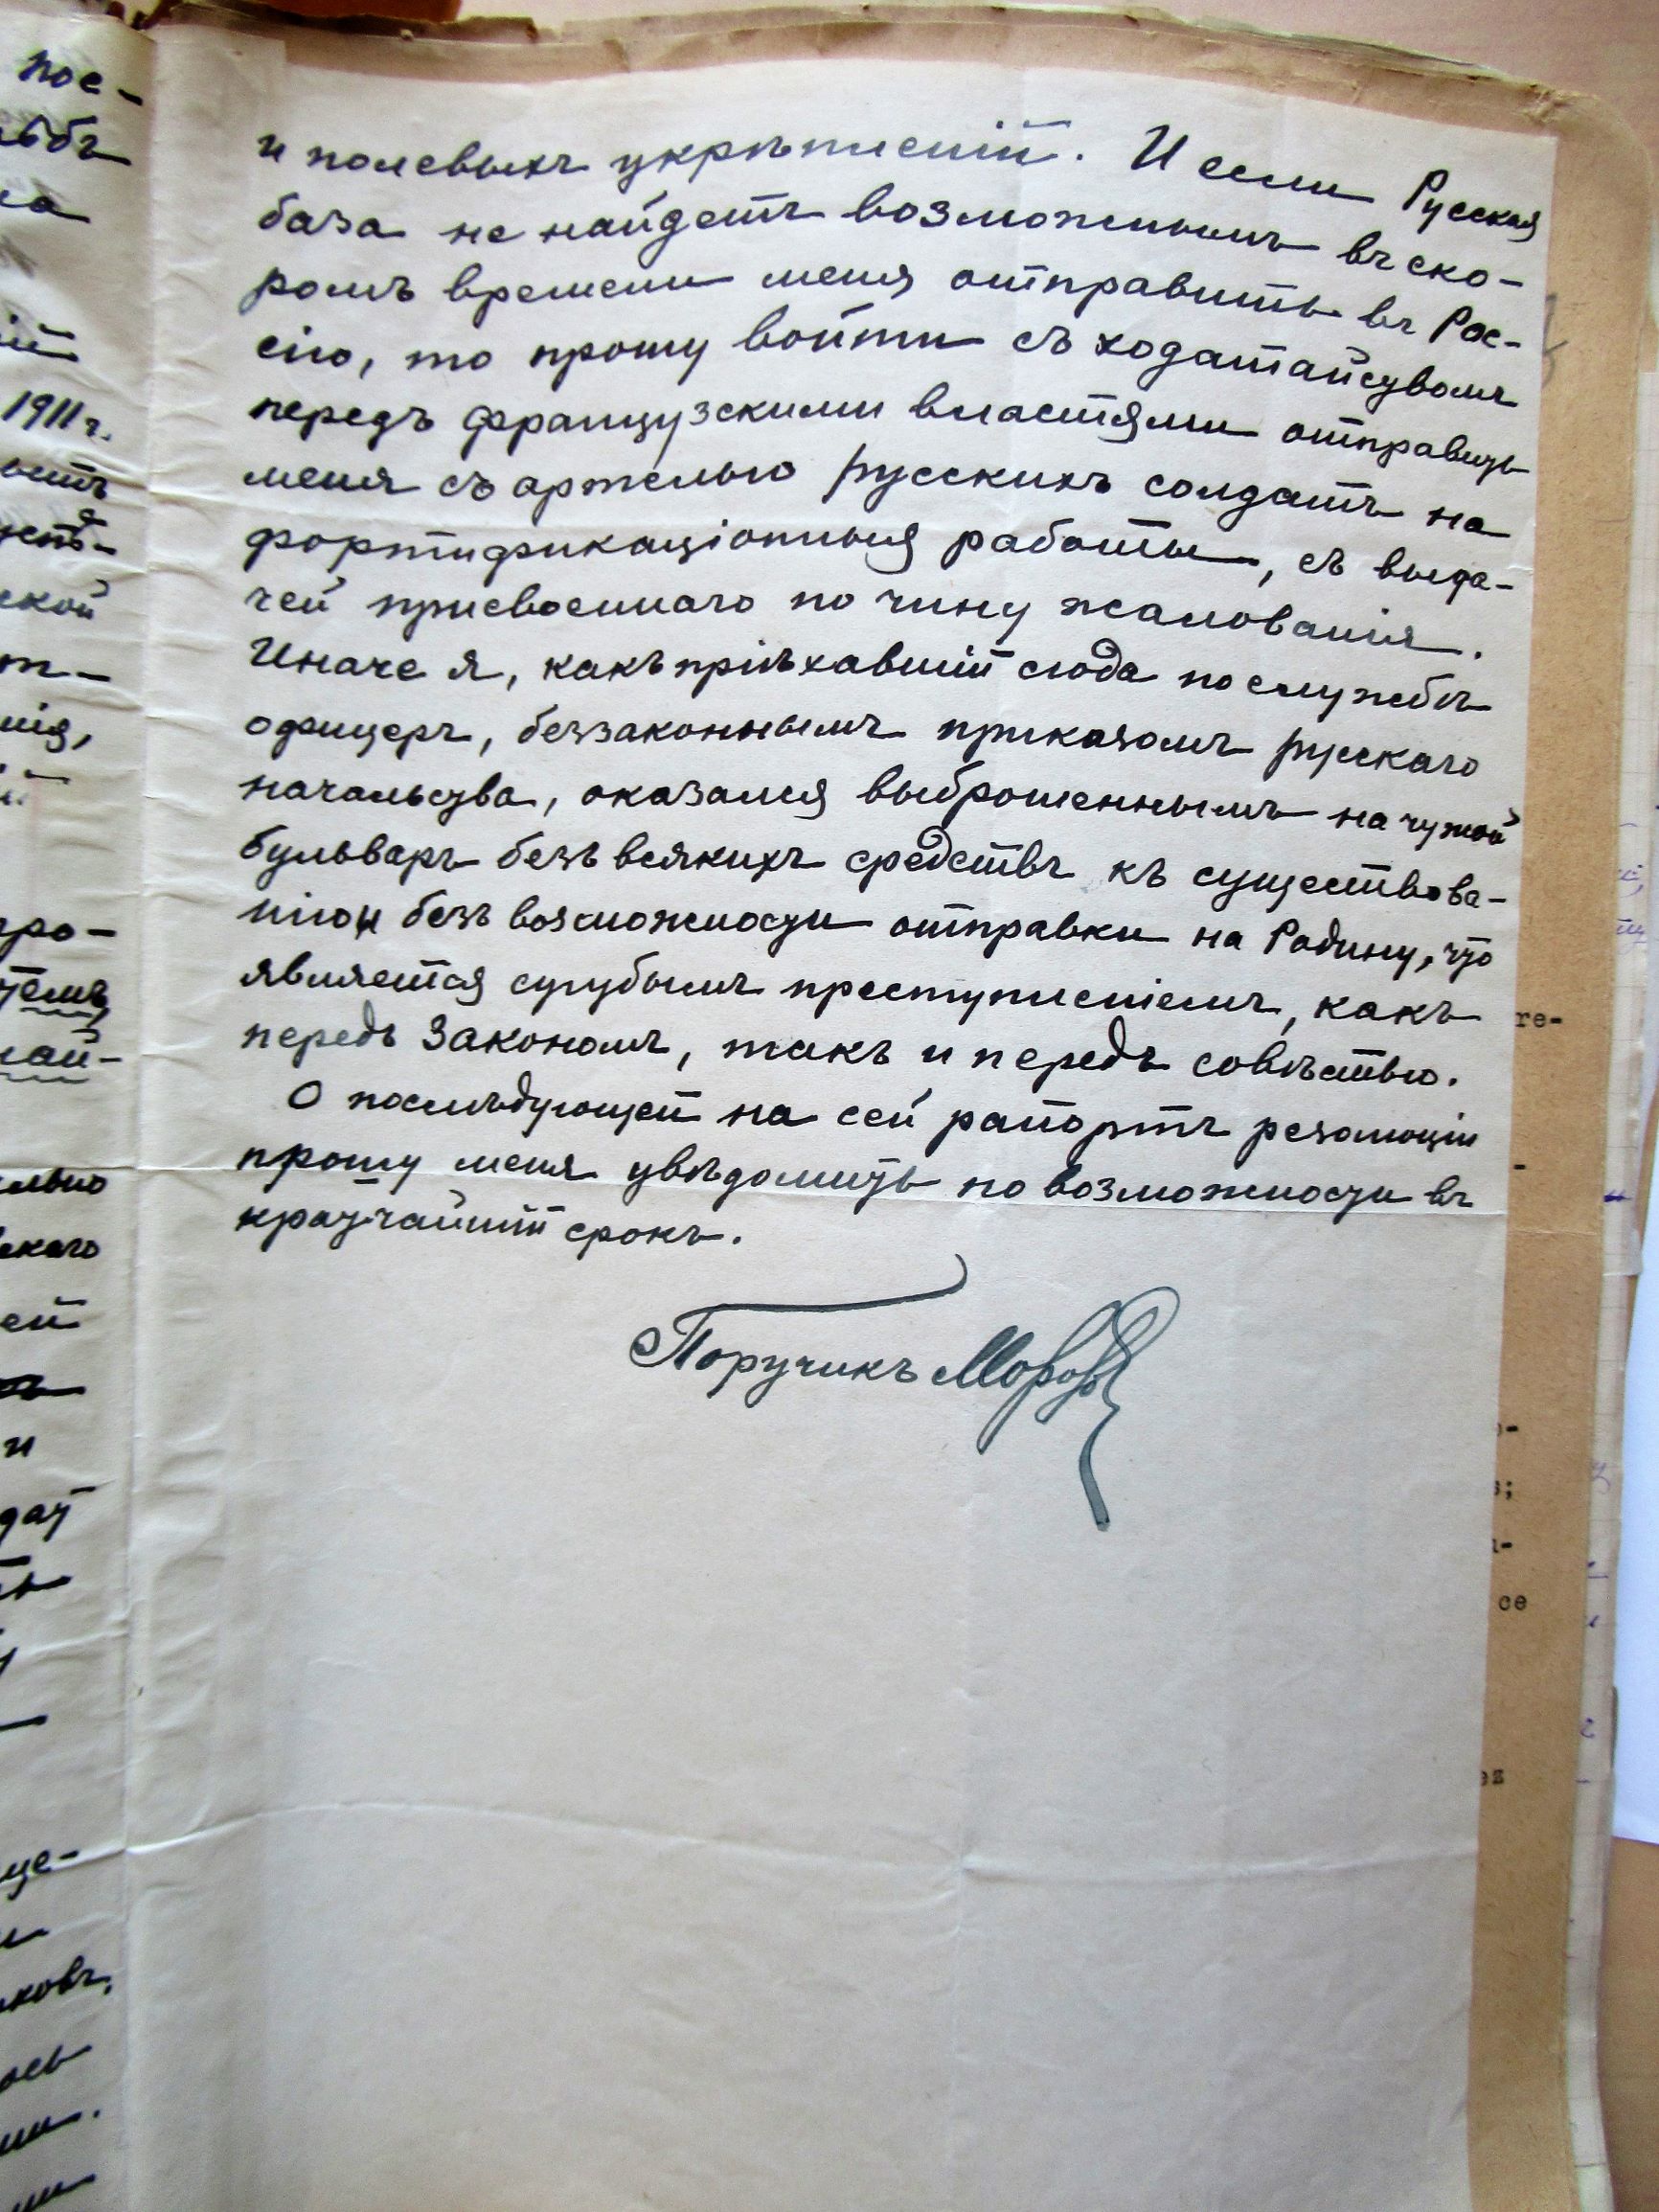 и полевыхъ укрѣпленій. И если Русская
база не найдетъ возможнымъ въ ско-
ромъ времени меня отправить въ Рос-
сію, то прошу войти съ ходатайствомъ
передъ французскими властями отправить
меня съ артелью русскихъ солдатъ на
фортификаціонныя работы, съ выда-
чей присвоеннаго по чину жалованія.
Иначе я, какъ пріѣхавшій сюда по службѣ
офицеръ, беззаконнымъ приказомъ русскаго
начальства, оказался выброшеннымъ на чужой
бульваръ безъ всякихъ средствъ къ существова-
нію и безъ возможности отправки на Родину, что
является сугубымъ преступленіемъ, какъ
передъ закономъ, такъ и передъ совѣстью.
О послѣдующей на сей рапортъ резолюціи
прошу меня увѣдомить по возможности въ
кратчайшій срокъ.
Поручикъ
пое-
1911 г.
ской
про-
скаго
ей
и
re-
се